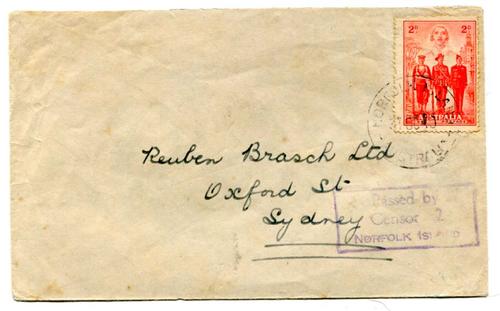 2D 2D
AUSTRALIA
Reuben Brasch Ltd
Oxford St
Sydney
Passed by
Censor 2
NORFOLK ISLAND